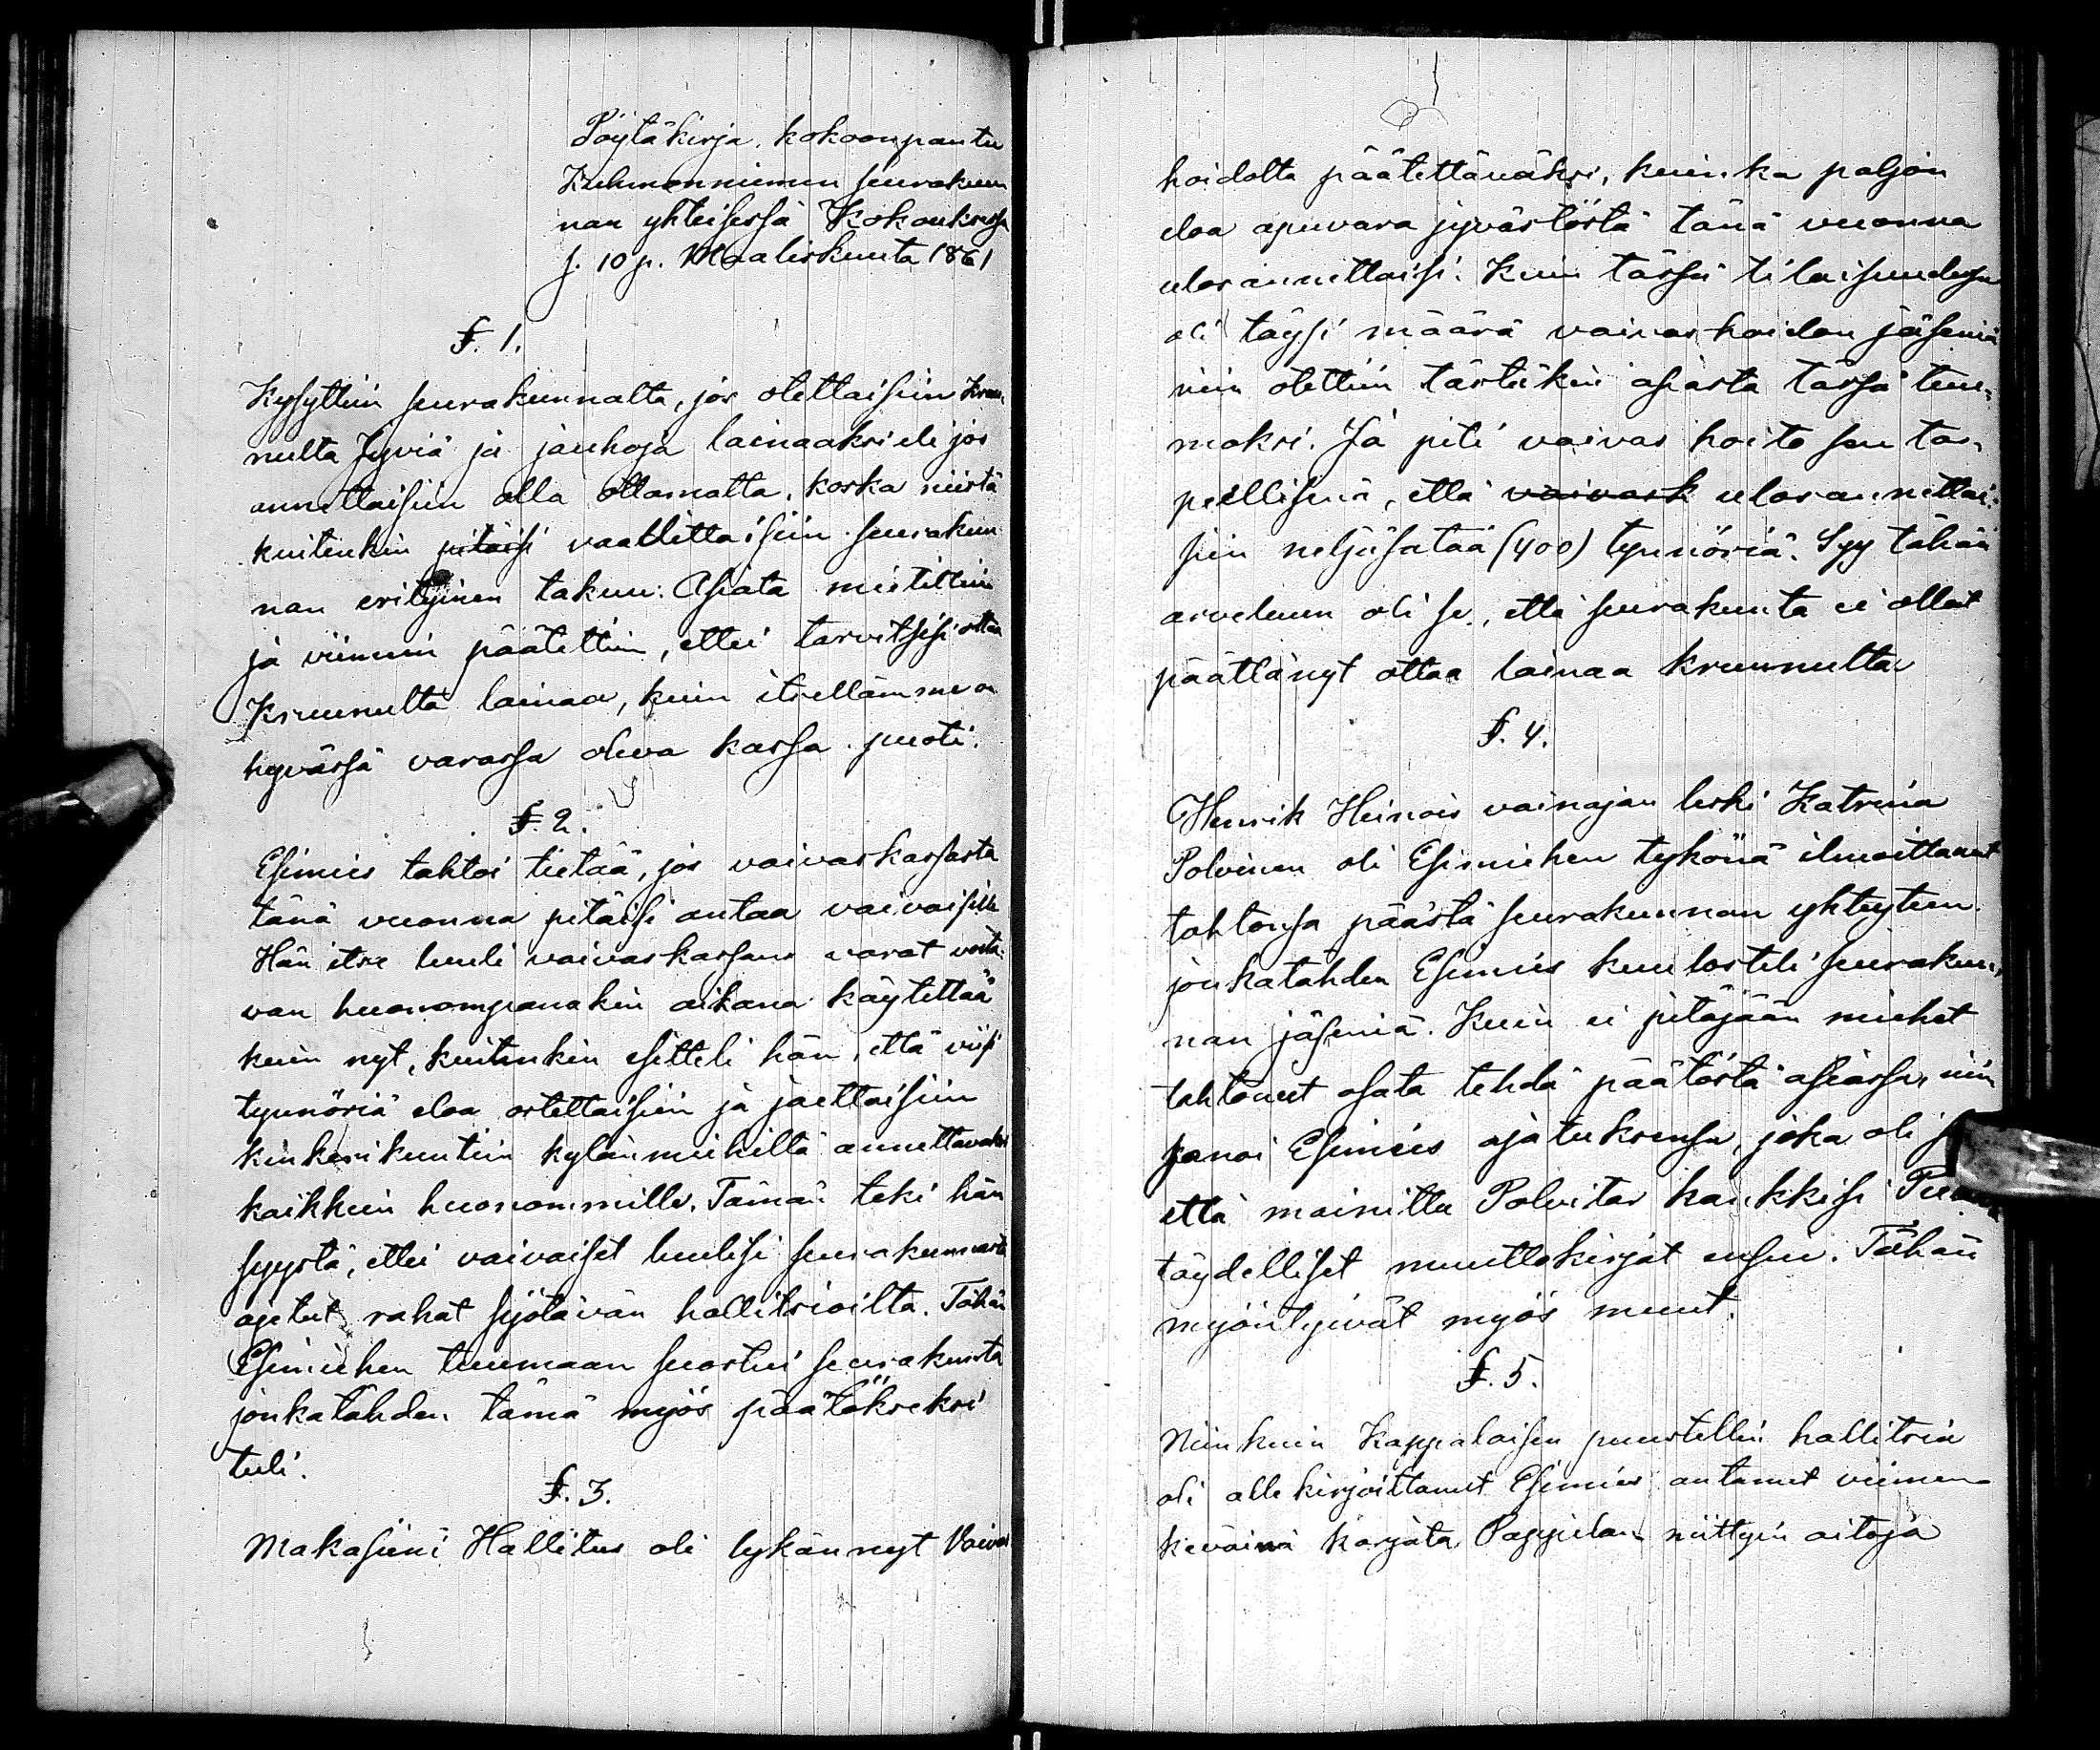 Pöytäkirja, kokoonpantu
Kuhmonniemen seurakun
nan yhteisessä Kokouksessa
s. 10 p. Maaliskuuta 1861
§. 1.
Kysyttiin seurakunnalta, jos otettaisiin Kruu-
nulta Jyviä ja jauhoja lainaaksi eli jos
annettaisiin olla ottamatta, koska niistä
kuitenkin pitäisi vaadittaisiin seurakun
nan erityinen takuu. Asiata mietittiin
ja viimein päätettiin, ettei tarvitsisi ottaa
Kruunulta lainaa, kuin itsellämme on
hyvässä varassa oleva kassa puoti.
§. 2.
Esimies tahtoi tietää, jos vaivaskassasta
tänä vuonna pitäisi antaa vaivaisille
Hän itse luuli vaivaskassans varat vasta-
van huonompanakin aikana käytettää
kuin nyt, kuitenkin esitteli hän, että viisi
tynnöriä eloa ostettaisiin ja jaettaisiin
kinkerikuntiin kylänmiehiltä annettavaksi
kaikkein huonommille. Tämän teki hän
syystä, ettei vaivaiset luulisi seurakunnasta
ajetut rahat syötävän hallitsioilta. Tähän
Esimiehen tuumaan suostui seurakunta
jonkatähden tämä myös päätökseksi
tuli.
§. 3.
Makasiini Hallitus oli lykännyt Vaivas
hoidolta päätettäväksi, kuinka paljon
eloa apuvara jyvästöstä tänä vuonna
ulosannettaisi. Kuin tässä tilaisuudessa
oli täysi määrä vaivashoidon jäseniä
niin otettiin tästäkin asiasta tässä tuu-
maksi. Ja piti vaivas hoito sen tar-
peellisenä, että vaivask ulosannettai-
siin neljäsataa (400) tynnöriä. Syy tähän
arveluun oli se, että seurakunta ei ollut
päättänyt ottaa lainaa kruunulta
§. 4.
Henrik Heinois vainajan leski Katrina
Polvinen oli Esimiehen tykönä ilmoittanut
tahtonsa päästä seurakunnan yhteyteen
jonkatähden Esimies kuulosteli seurakun-
nan jäseniä. Kuin ei pitäjään miehet
tahtoneet osata tehdä päätöstä asiassa, niin
sanoi Esimies ajatuksensa, joka oli se
että mainittu Polvitar hankkisi
täydelliset muuttokirjat ensin. Tähän
myöntyivät myös muut.
§. 5.
Niinkuin Kappalaisen puustellin hallitsia
oli allekirjoittanut Esimies antanut viimen-
keväinä korjata Pappilan niittyin aitoja